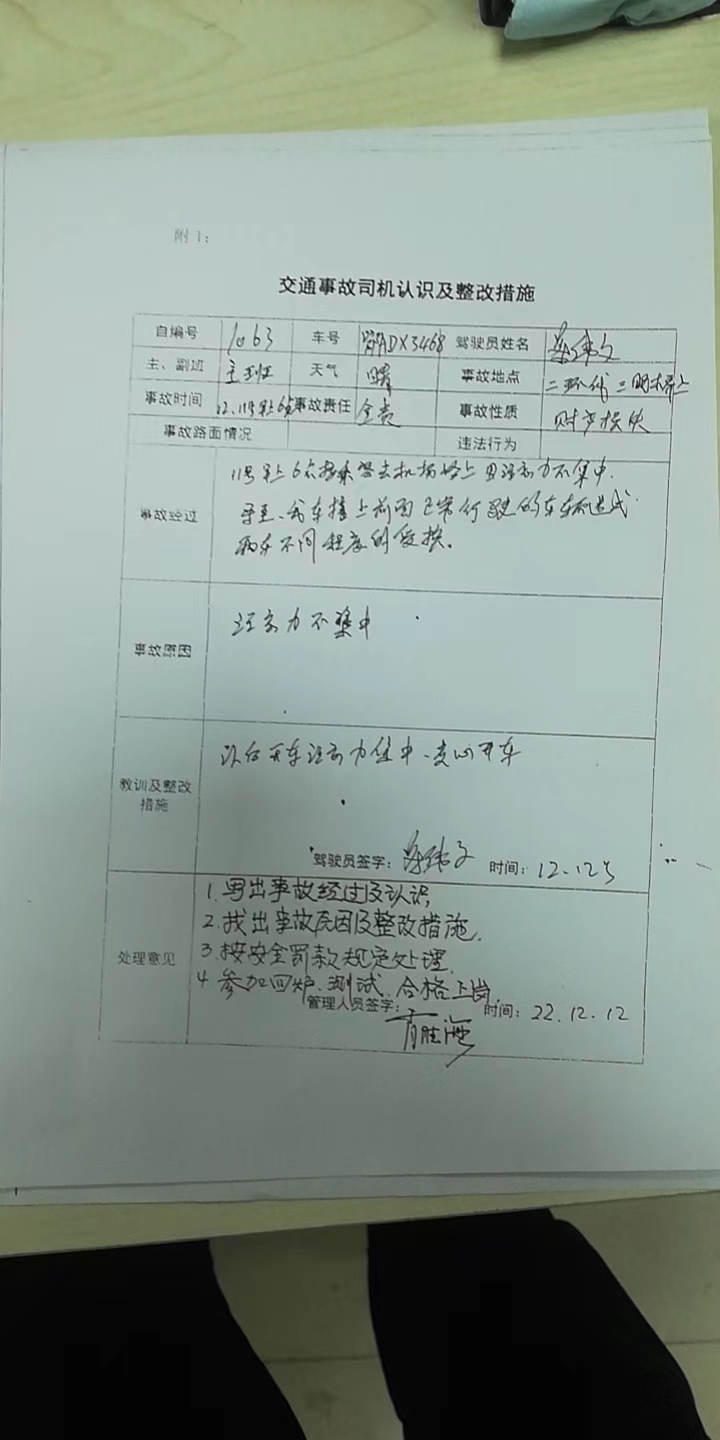 附1:
交通事故司机认识及整改措施
自编号 1063 车号 ADX3468 驾驶员姓名
主、副班 主班 天气 晴 事故地点 二环
事故时间 12.11号早上6点 事故责任 全责 事故性质 财产损失
事故路面情况 违法行为
事故经过
11号早上6点 去机场路上因注意力不集中.
我车撞上前面正常行驶的车 造成
两车不同程度的受损。
事故原因
注意力不集中
教训及整改措施
以后开车注意力集中、 开车
驾驶员签字: 时间: 12.12号
处理意见
1.写出事故经过及认识,
2.找出事故原因及整改措施.
3.按安全罚款规定处理.
4.参加回炉.测试.合格上岗.
管理人员签字: 时间: 22.12.12